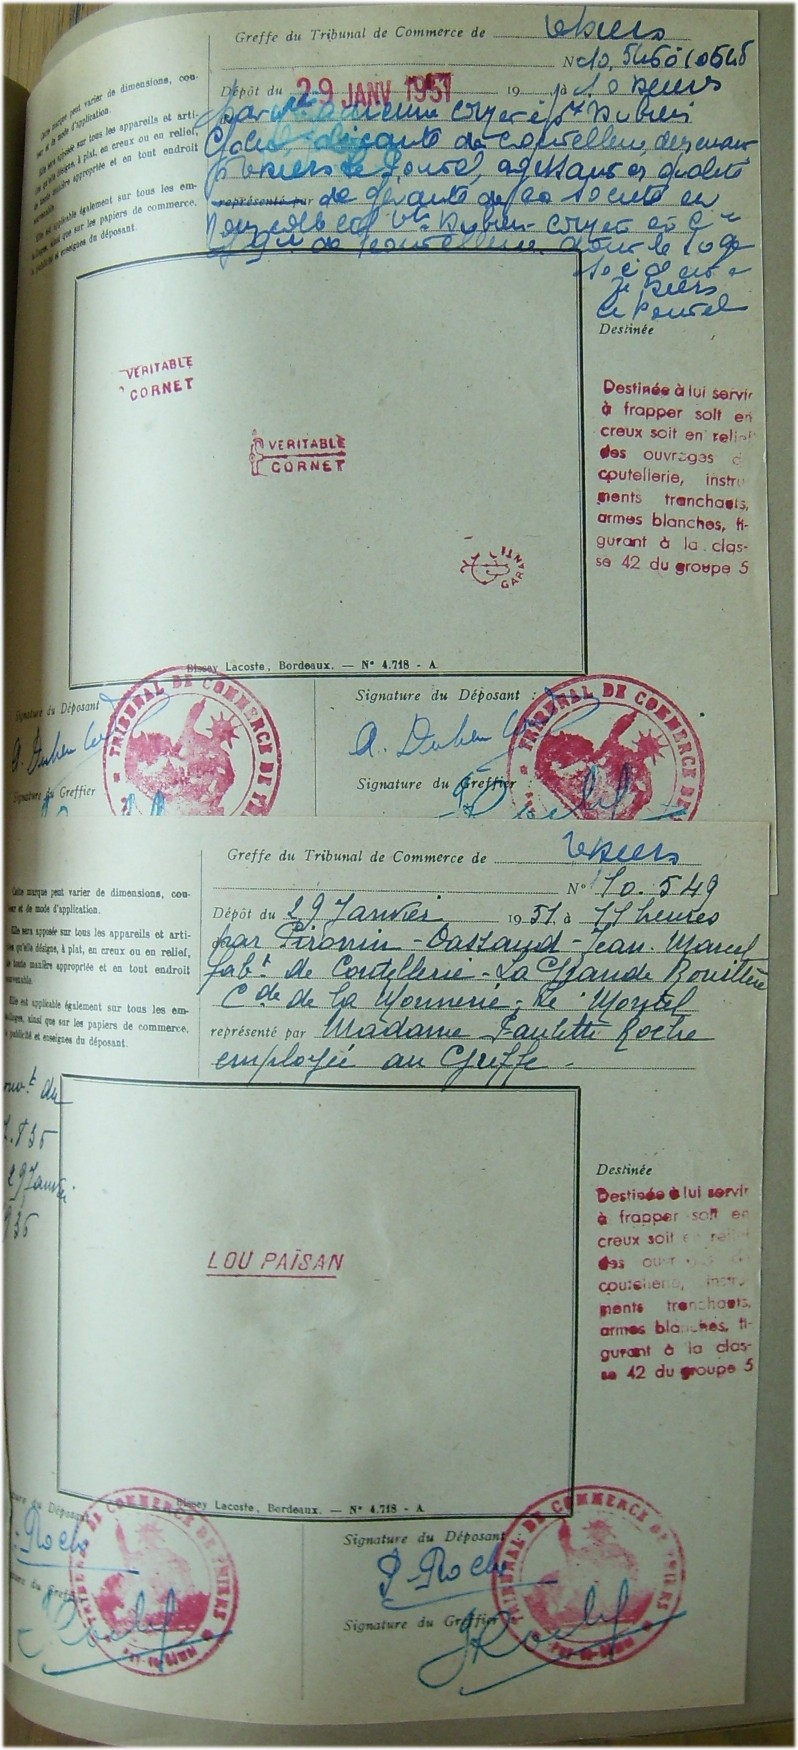 Greffe du Tribunal de Commerce de Thiers
N° 10.546 à 10.548
Dépôt du 29 JANV 1951 19 à 10 heures
Cette marque peut varier de dimensions, cou-
leur et de mode d'application.
Elle sera apposée sur tous les appareils et arti-
cles qu'elle désigne, à plat, en creux ou en relief,
de toute manière appropriée et en tout endroit
convenable.
Elle est applicable également sur tous les em-
ballages, ainsi que sur les papiers de commerce,
publicité et enseignes du déposant.
de coutellerie, demeurant
Thiers Le Pontel, agissant en qualité
représenté par de gérante de la société en
de coutellerie dont le siège
social est à
Thiers
Le Pontel
Destinée
Destinée à lui servir
à frapper soit en
creux soit en relief
des ouvrages de
coutellerie, instru
ments tranchants,
armes blanches, fi-
gurant à la clas-
se 42 du groupe 5
VERITABLE
CORNET
VERITABLE
CORNET
GARANTI
Bissey Lacoste, Bordeaux. — N° 4.718 - A
Signature du Déposant
Signature du Déposant :
Signature du Greffier
Signature du Greffier :
TRIBUNAL DE COMMERCE DE
TRIBUNAL DE COMMERCE DE
Greffe du Tribunal de Commerce de Thiers
N° 10.549
Dépôt du 29 Janvier 1951 à 11 heures
Cette marque peut varier de dimensions, cou-
leur et de mode d'application.
Elle sera apposée sur tous les appareils et arti-
cles qu'elle désigne, à plat, en creux ou en relief,
de toute manière appropriée et en tout endroit
convenable.
Elle est applicable également sur tous les em-
ballages, ainsi que sur les papiers de commerce,
publicité et enseignes du déposant.
par Pironin - Dassaud - Jean. Marcel
fabt de Coutellerie - La Grande
Cne de la Monnerie, Le Montel
représenté par Madame Paulette Roche
employée au Greffe -
du
29 Janvier
Destinée
Destinée à lui servir
à frapper soit en
creux soit en relief
des ouvrages de
coutellerie, instru
ments tranchants,
armes blanches, fi-
gurant à la clas-
se 42 du groupe 5
LOU PAÏSAN
Bissey Lacoste, Bordeaux. — N° 4.718 - A
Signature du Déposant
P. Roche
Signature du Greffier
Signature du Déposant
P. Roche
Signature du Greffier
TRIBUNAL DE COMMERCE DE THIERS
TRIBUNAL DE COMMERCE DE THIERS